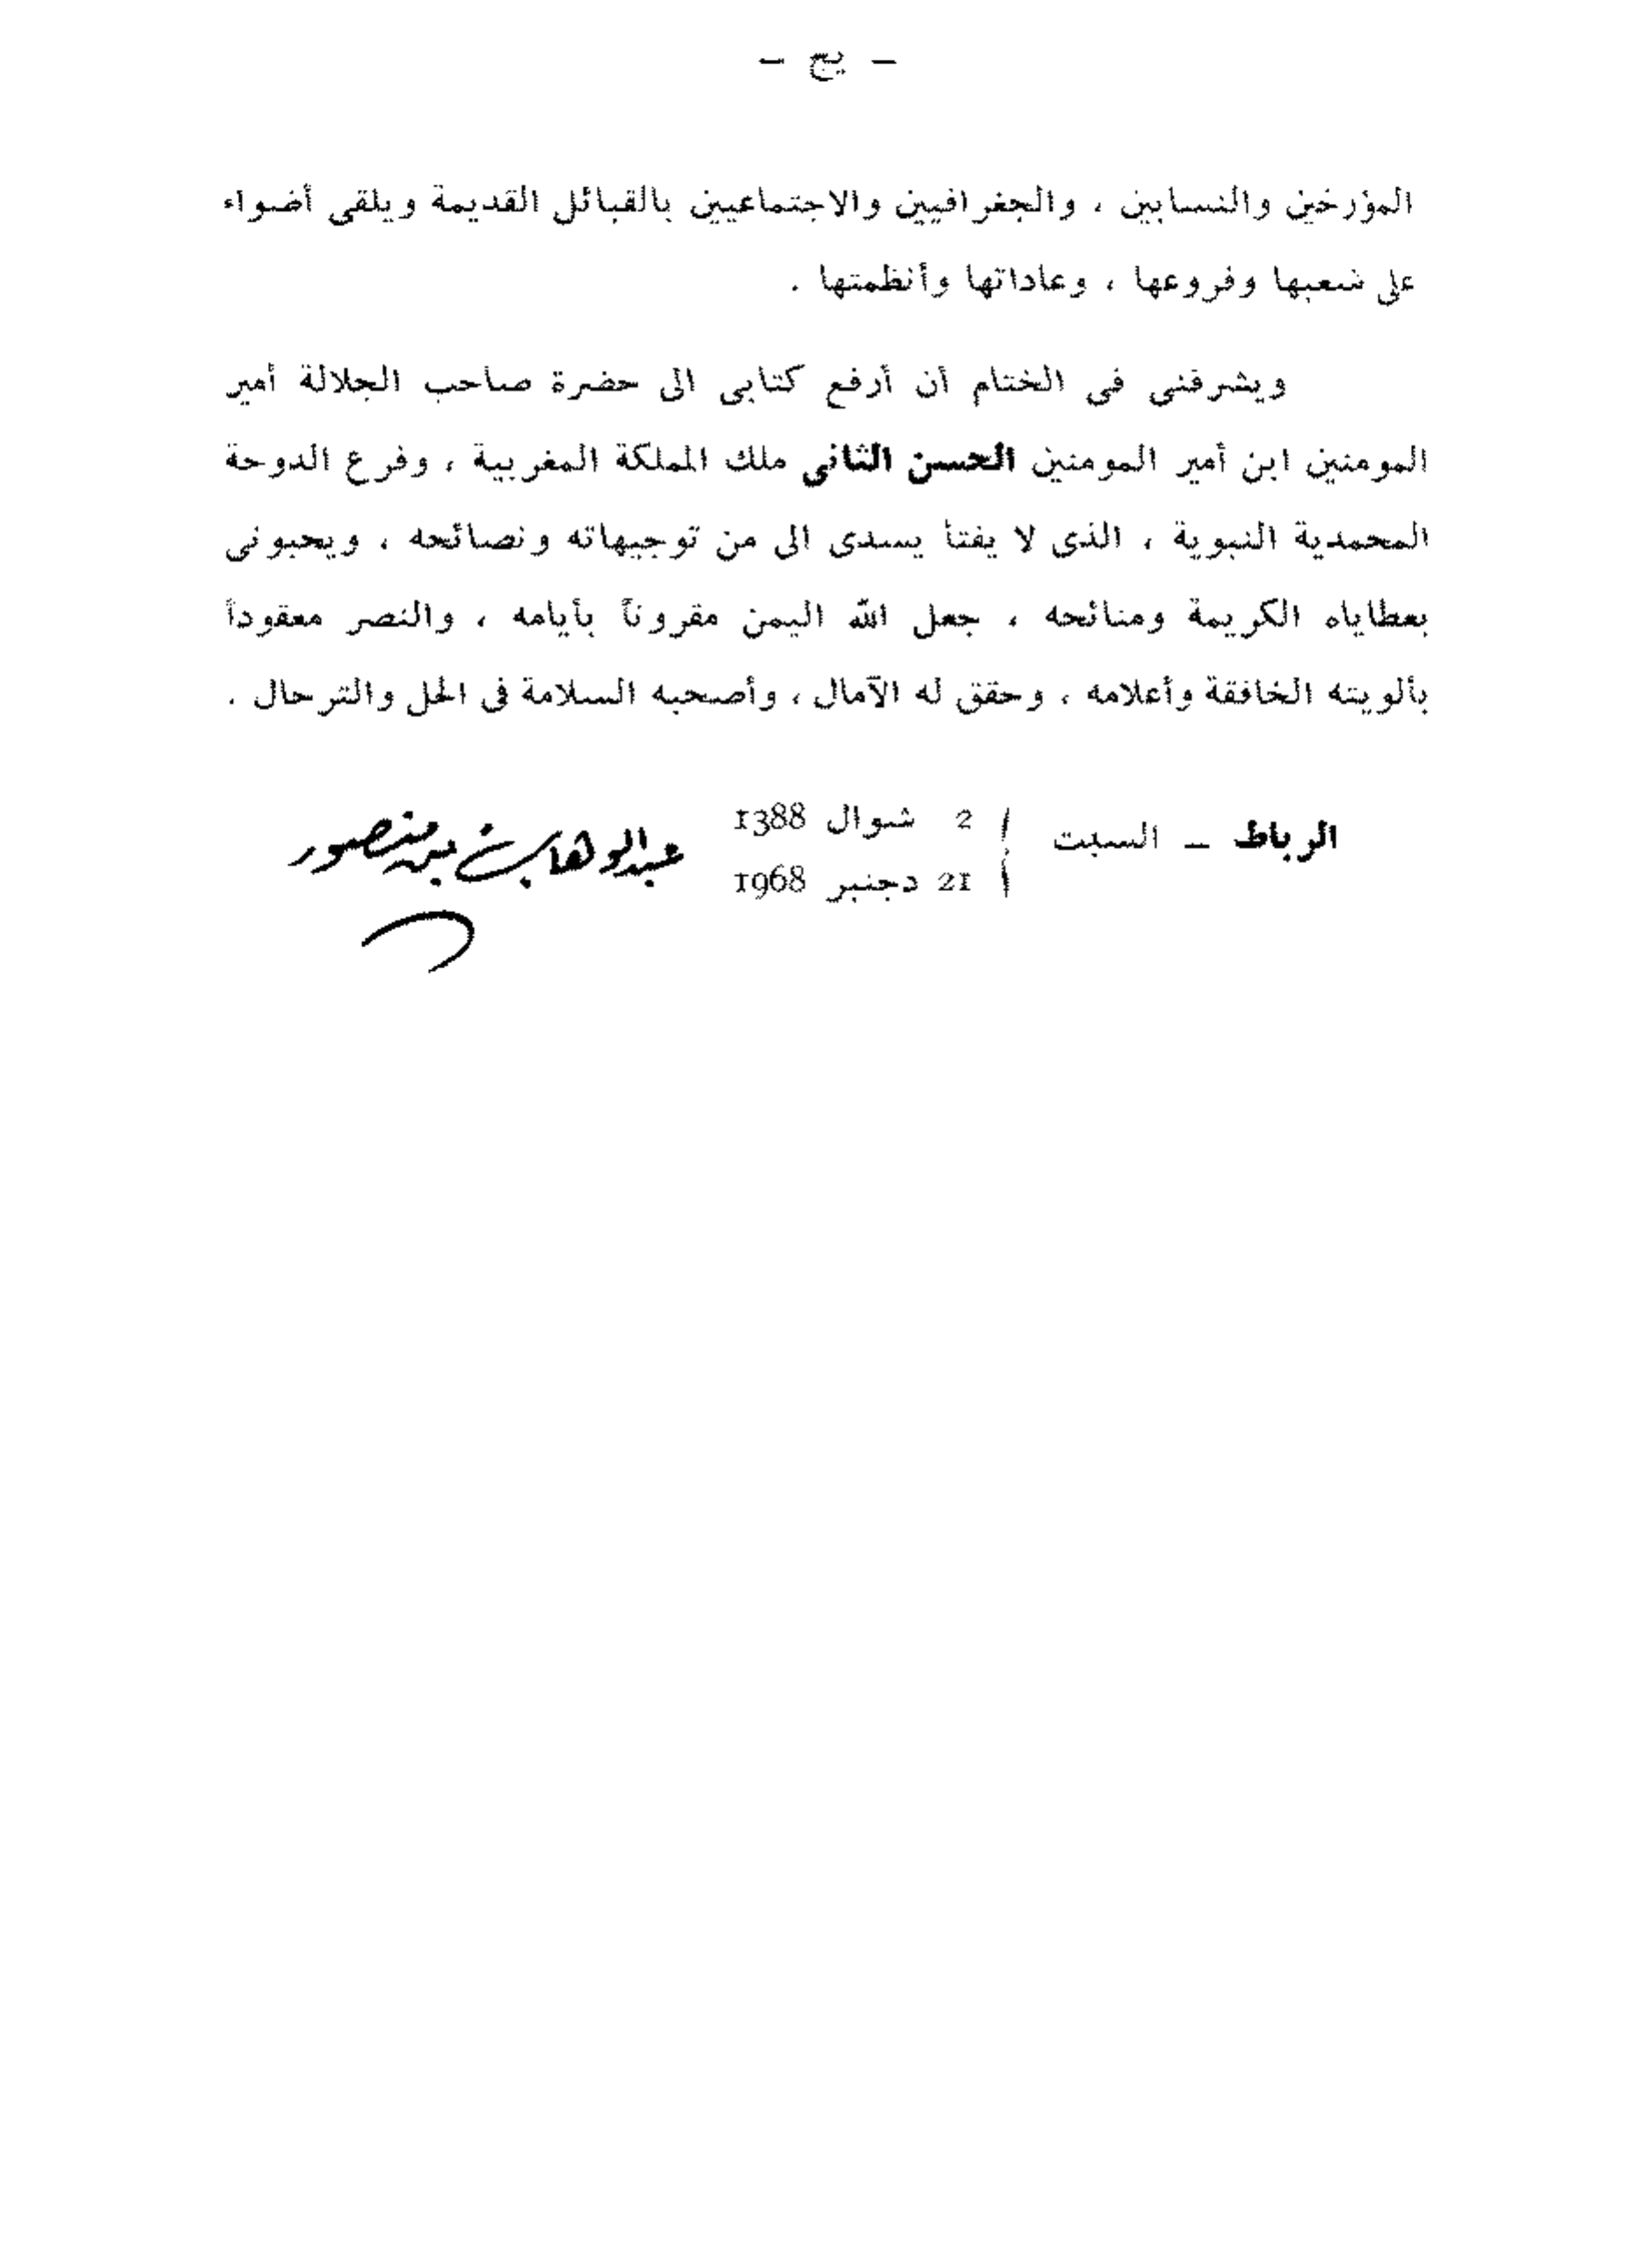 - يج -
المؤرخين والنسابين ، والجغرافيين والاجتماعيين بالقبائل القديمة ويلقى أضواء
على شعبها وفروعها ، وعاداتها وأنظمتها .
ويشرفنى فى الختام أن أرفع كتابى الى حضرة صاحب الجلالة أمير
المومنين ابن أمير المومنين الحسن الثانى ملك المملكة المغربية ، وفرع الدوحة
المحمدية النبوية ، الذى لا يفتأ يسدى الى من توجيهاته ونصائحه ، ويحبونى
بعطاياه الكريمة ومنائحه ، جعل الله اليمن مقروناً بأيامه ، والنصر معقوداً
بألويته الخافقة وأعلامه ، وحقق له الآمال ، وأصحبه السلامة فى الحل والترحال .
الرباط - السبت
2 شوال 1388
21 دجنبر 1968
عبدالوهاب بن منصور